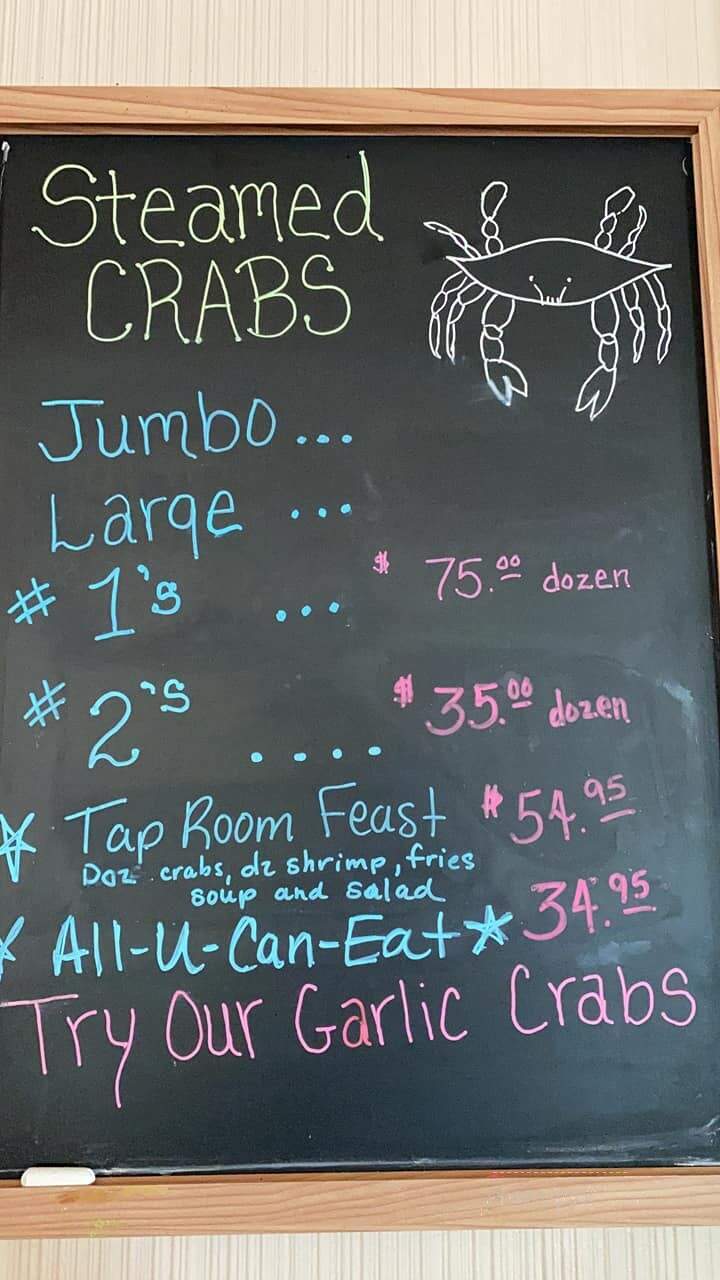 Steamed
CRABS
Jumbo ...
Large ...
# 1's ... $ 75.00 dozen
# 2's .... $ 35.00 dozen
Tap Room Feast $54.95
Doz crabs, dz shrimp, fries
soup and salad
All-U-Can-Eat 34.95
Try Our Garlic Crabs